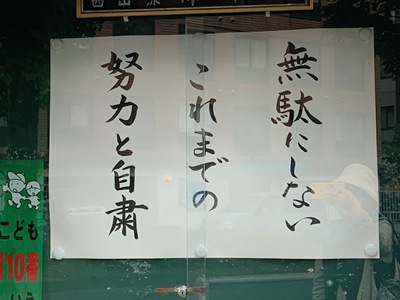 無駄にしない
これまでの
努力と自粛
こども
110番